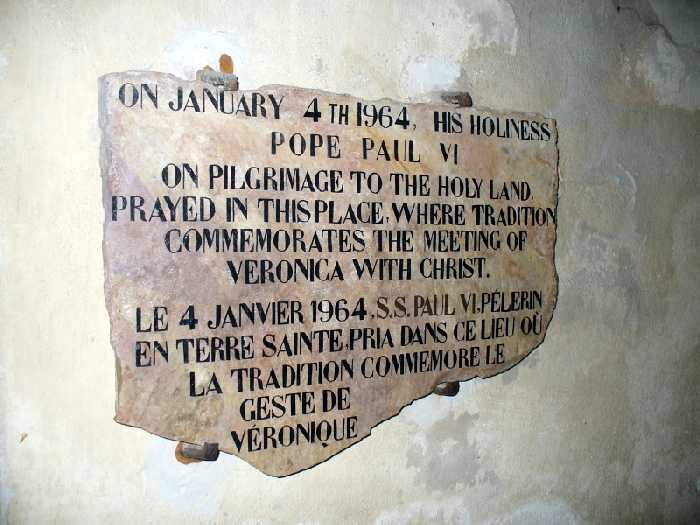 ON JANUARY 4TH 1964, HIS HOLINESS
POPE PAUL VI
ON PILGRIMAGE TO THE HOLY LAND
PRAYED IN THIS PLACE, WHERE TRADITION
COMMEMORATES THE MEETING OF
VERONICA WITH CHRIST.
LE 4 JANVIER 1964, S.S. PAUL VI, PÉLERIN
EN TERRE SAINTE, PRIA DANS CE LIEU OÙ
LA TRADITION COMMEMORE LE
GESTE DE
VÉRONIQUE